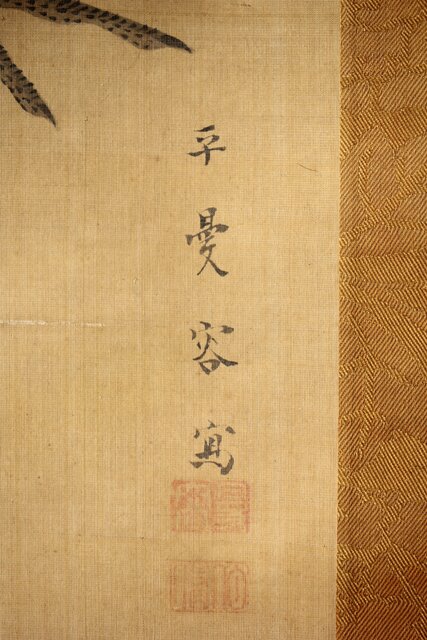 平曼容寫